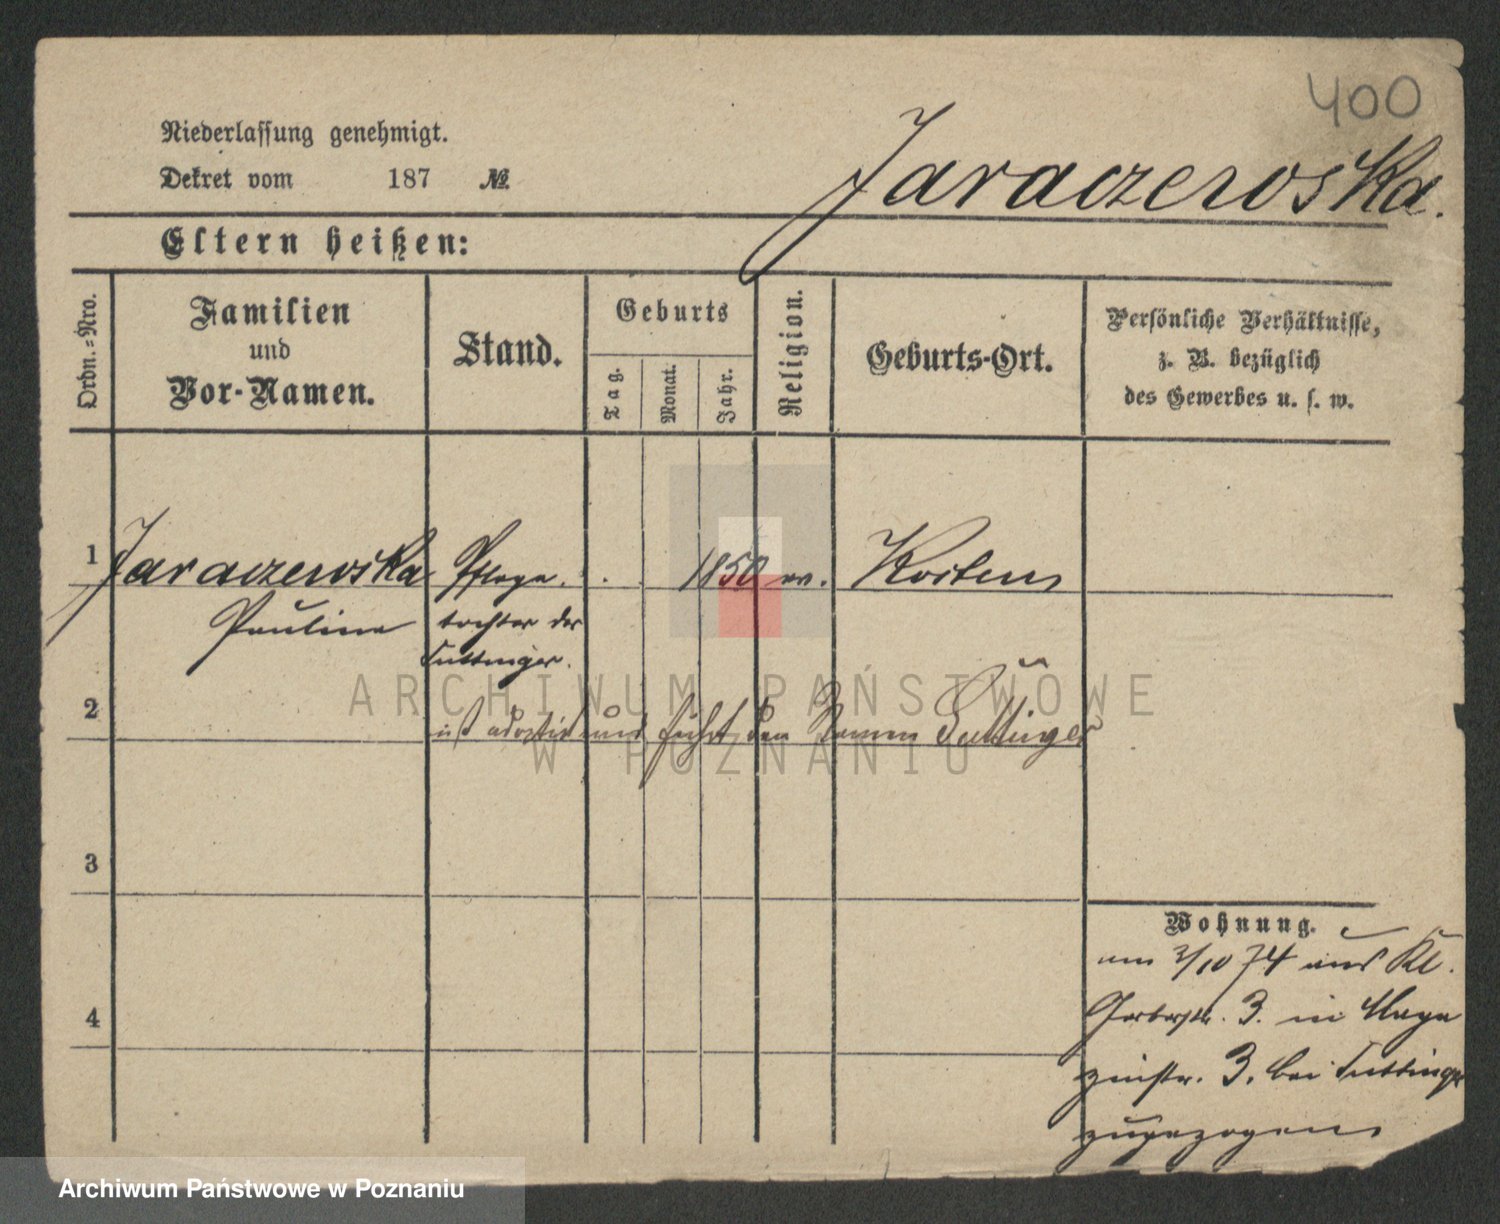 400
Niederlassung genehmigt.
Dekret vom 187 №
Jaraczewska.
Eltern heißen:
Ordn.=Nro.
Familien
und
Vor-Namen.
Stand.
Geburts
Tag.
Monat.
Jahr.
Religion.
Geburts-Ort.
Persönliche Verhältnisse,
z. B. bezüglich
des Gewerbes u. s. w.
1 Jaraczewska Pflege. 1850 ev. Kosten
Pauline tochter der
Suttinger.
ARCHIWUM PAŃSTWOWE
2 ist adoptirt und führt den Namen Suttinger
W POZNANIU
3
Wohnung.
am 3/10 74 aus Kl.
4 Gerberstr. 3. in Maga
zinstr. 3. bei Suttinger
zugezogen
Archiwum Państwowe w Poznaniu